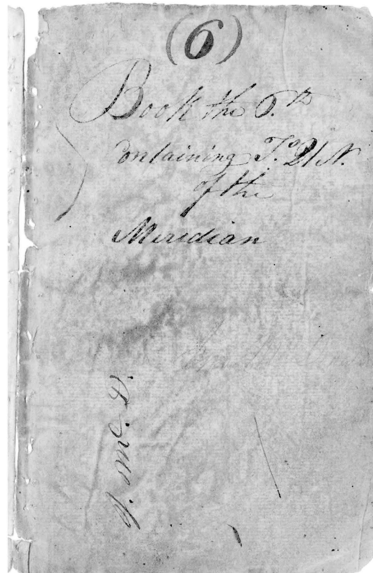 (6)
Book the 6.th
ontaining T.o 21 N.
of the
Meridian